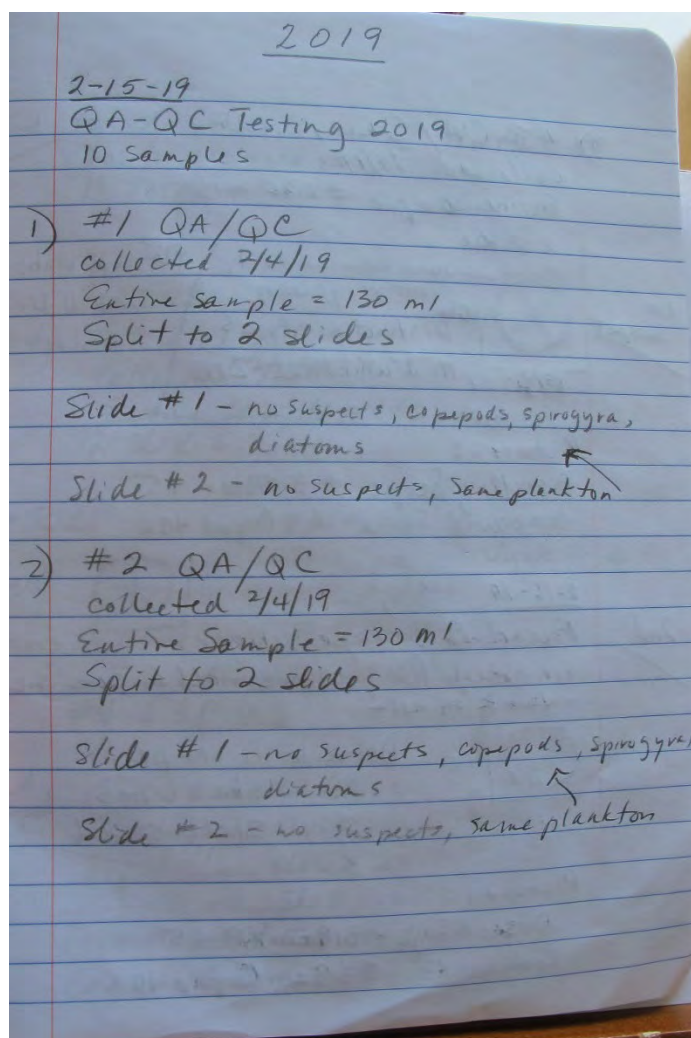 2019
2-15-19
QA-QC Testing 2019
10 Samples
1) #1 QA/QC
collected 2/4/19
Entire sample = 130 ml
Split to 2 slides
Slide #1 - no suspects, copepods, spirogyra,
diatoms
Slide #2 - no suspects, Same plankton
2) #2 QA/QC
collected 2/4/19
Entire Sample = 130 ml
Split to 2 slides
Slide #1 - no suspects, copepods, spirogyra,
diatoms
Slide #2 - no suspects, same plankton